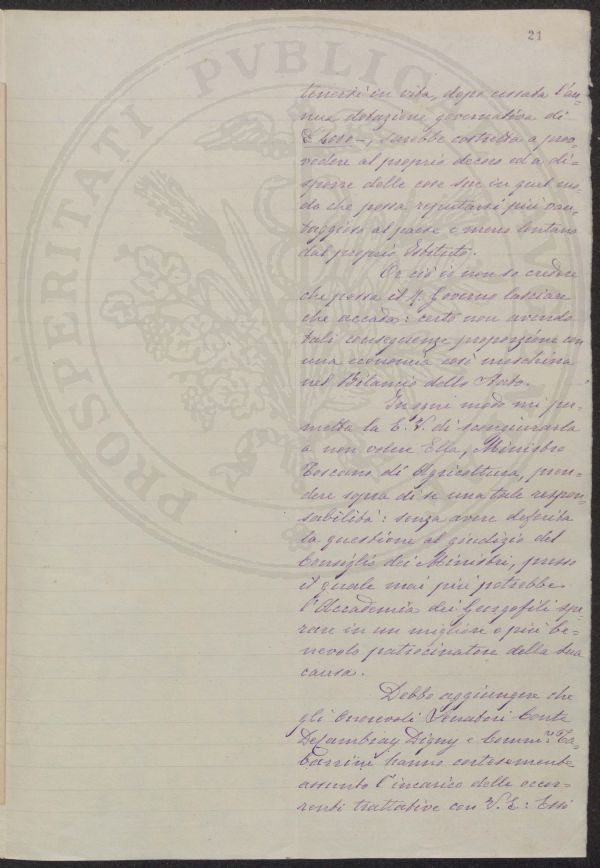 21
PROSPERITATI PVBLICAE
tenersi in vita, dopo cessata l'an=
nua dotazione governativa di
sarebbe costretta a prov=
vedere al proprio decoro ed a di=
sporre delle cose sue in quel mo=
do che possa reputarsi più van=
taggioso al paese e meno lontano
dal proprio Istituto.
Or ciò io non so credere
che possa il R. Governo lasciare
che accada: certo non avendo
tali conseguenze proporzione con
una economia così meschina
nel Bilancio dello Stato.
In ogni modo mi per=
metta la E. V. di scongiurarla
a non volere Ella, Ministro
Toscano di Agricoltura, pren=
dere sopra di se una tale respon=
sabilità: senza avere deferita
la questione al giudizio del
Consiglio dei Ministri, presso
il quale mai più potrebbe
l'Accademia dei Gergofili spe=
rare in un migliore e più be=
nevolo patrocinatore della sua
causa.
Debbo aggiungere che
gli Onorevoli Senatori Conte
De Cambray Digny e Comm.r Ta=
barrini hanno cortesemente
assunto l'incarico delle occor=
renti trattative con V. E: Essi